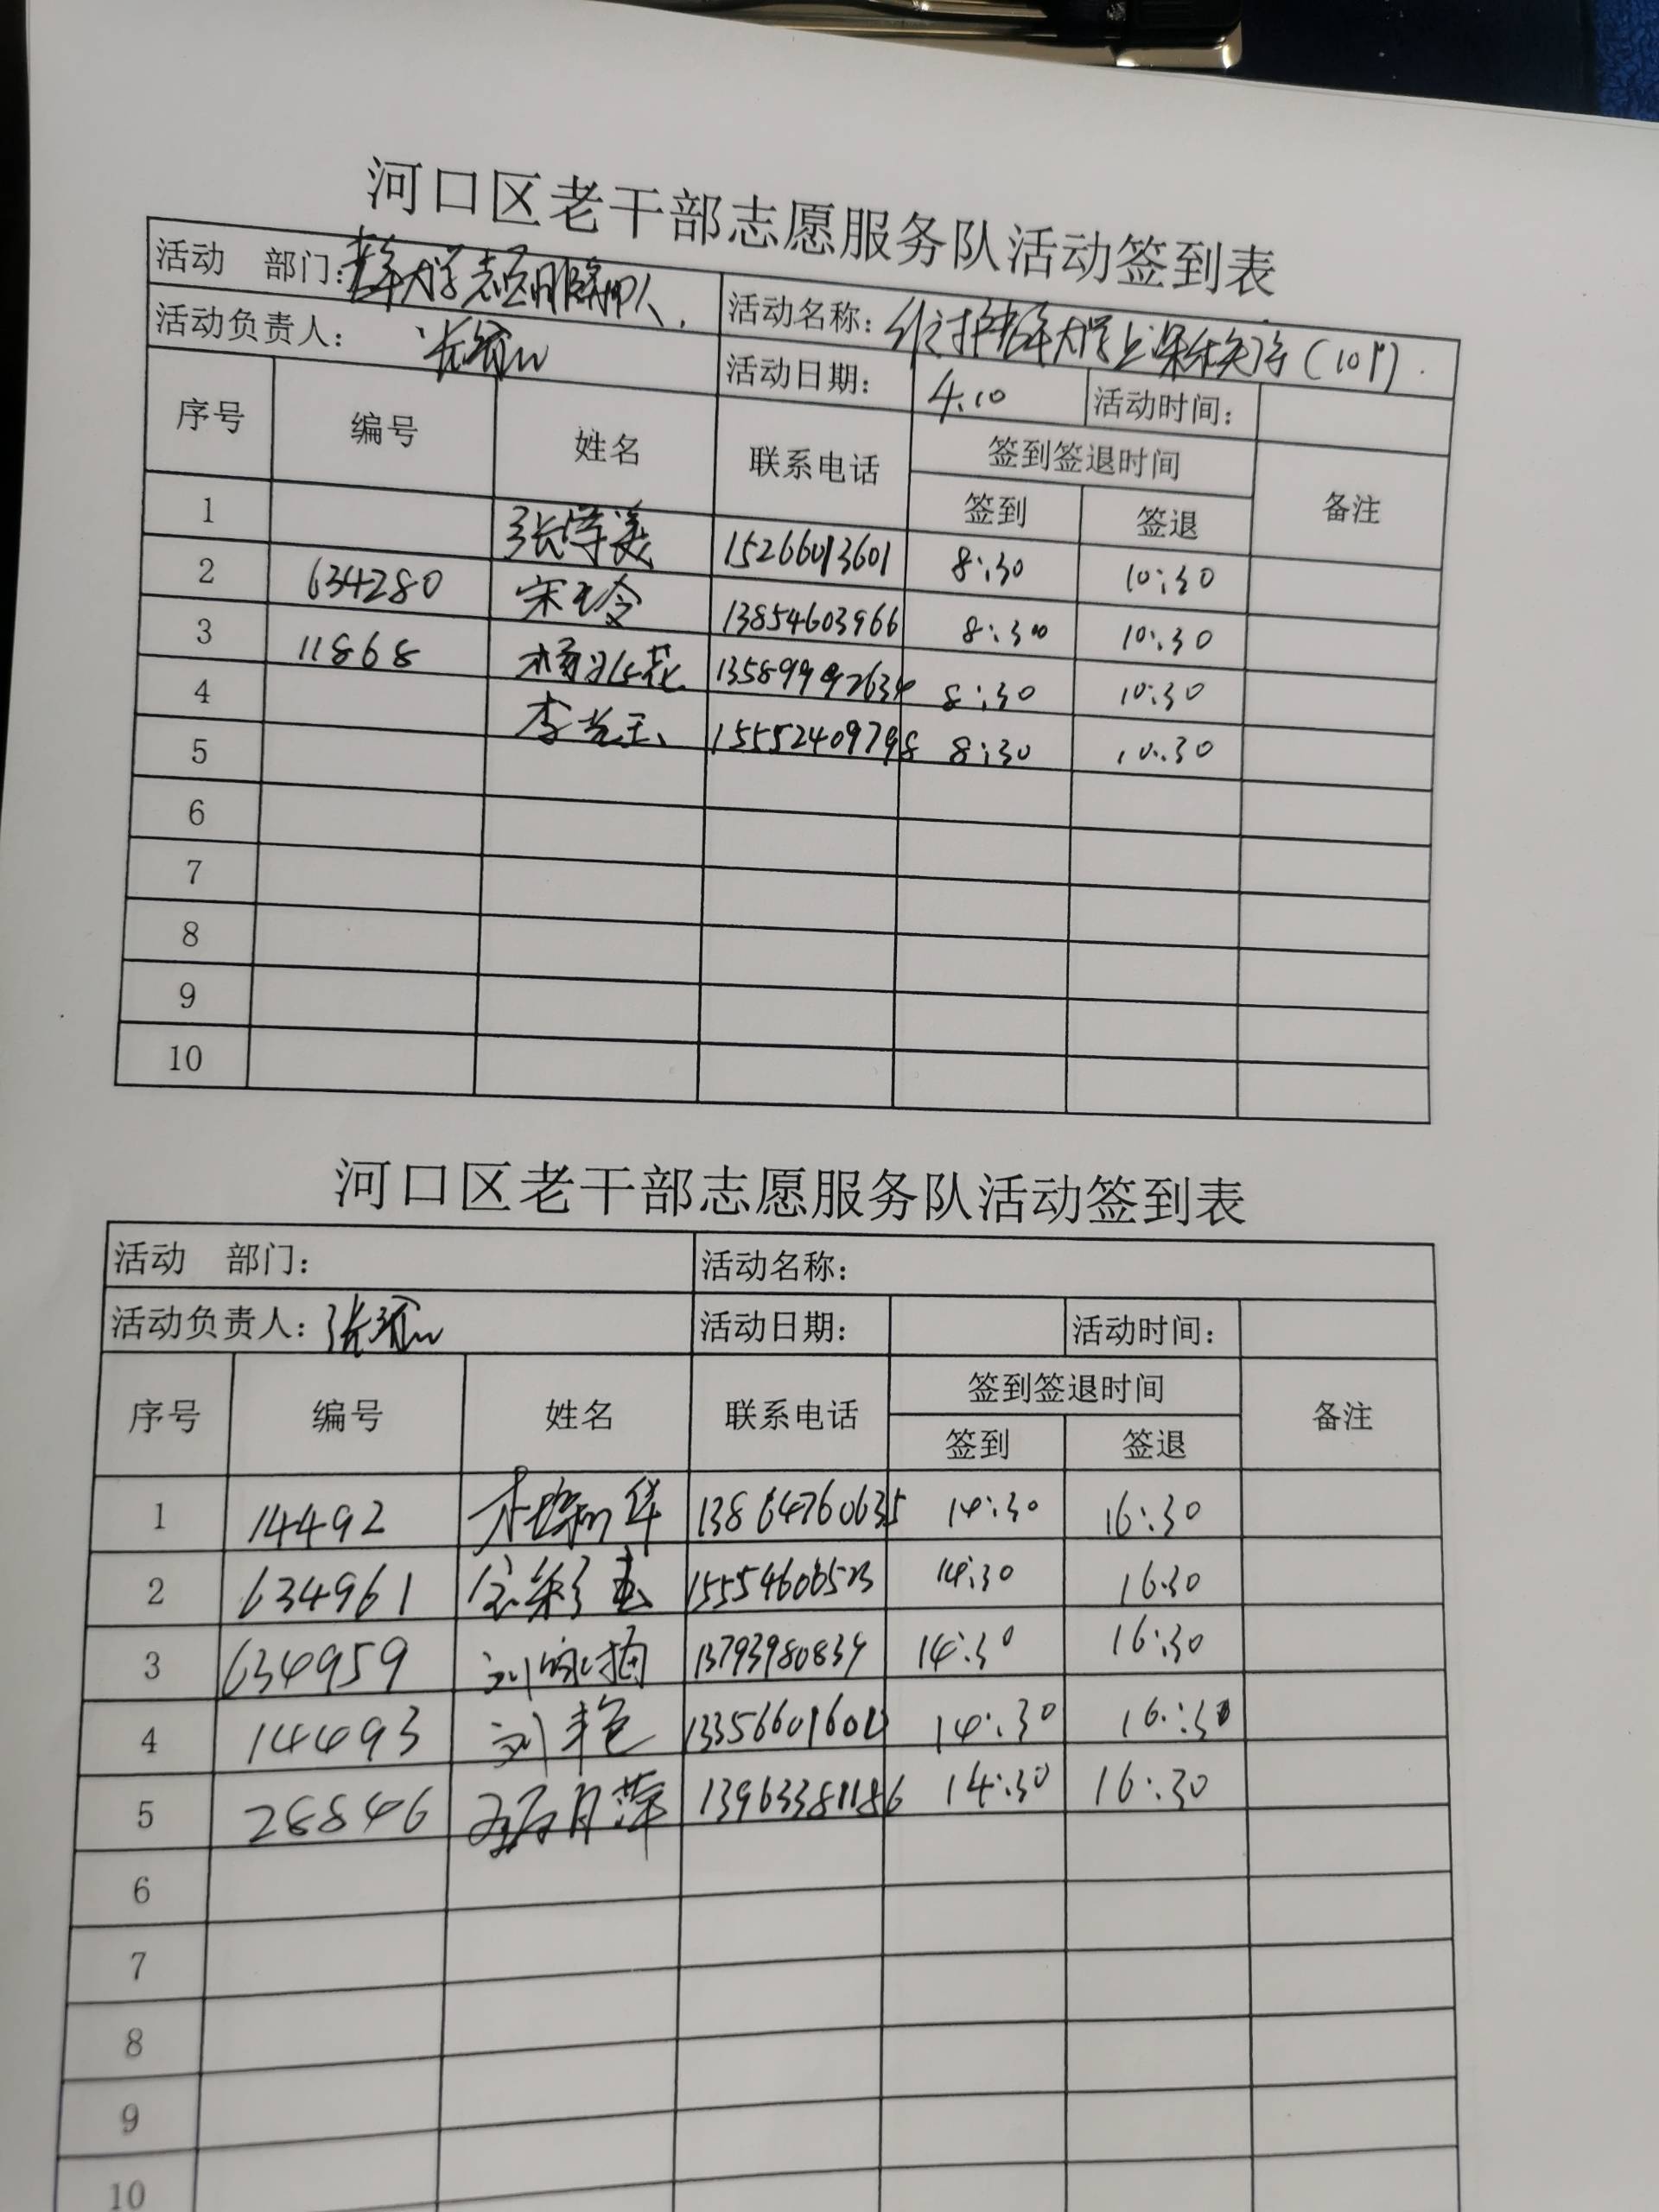 河口区老干部志愿服务队活动签到表
活动 部门：老年大学志愿服务队
活动名称：维护老年大学上课秩序（10人）
活动负责人：
活动日期： 4.10 活动时间：
序号 编号 姓名 联系电话 签到签退时间 备注
签到 签退
1 张学美 15266013601 8:30 10:30
2 634280 宋玉玲 13854603966 8:30 10:30
3 11868 杨兆花 8:30 10:30
4 李光玉 15552409798 8:30 10:30
5
6
7
8
9
10
河口区老干部志愿服务队活动签到表
活动 部门： 活动名称：
活动负责人：张 活动日期： 活动时间：
序号 编号 姓名 联系电话 签到签退时间 备注
签到 签退
1 14492 13864760635 14:30 16:30
2 634961 14:30 16:30
3 634959 刘 13793980839 14:30 16:30
4 14493 刘丰色 14:30 16:30
5 28846 月萍 13963381186 14:30 16:30
6
7
8
9
10